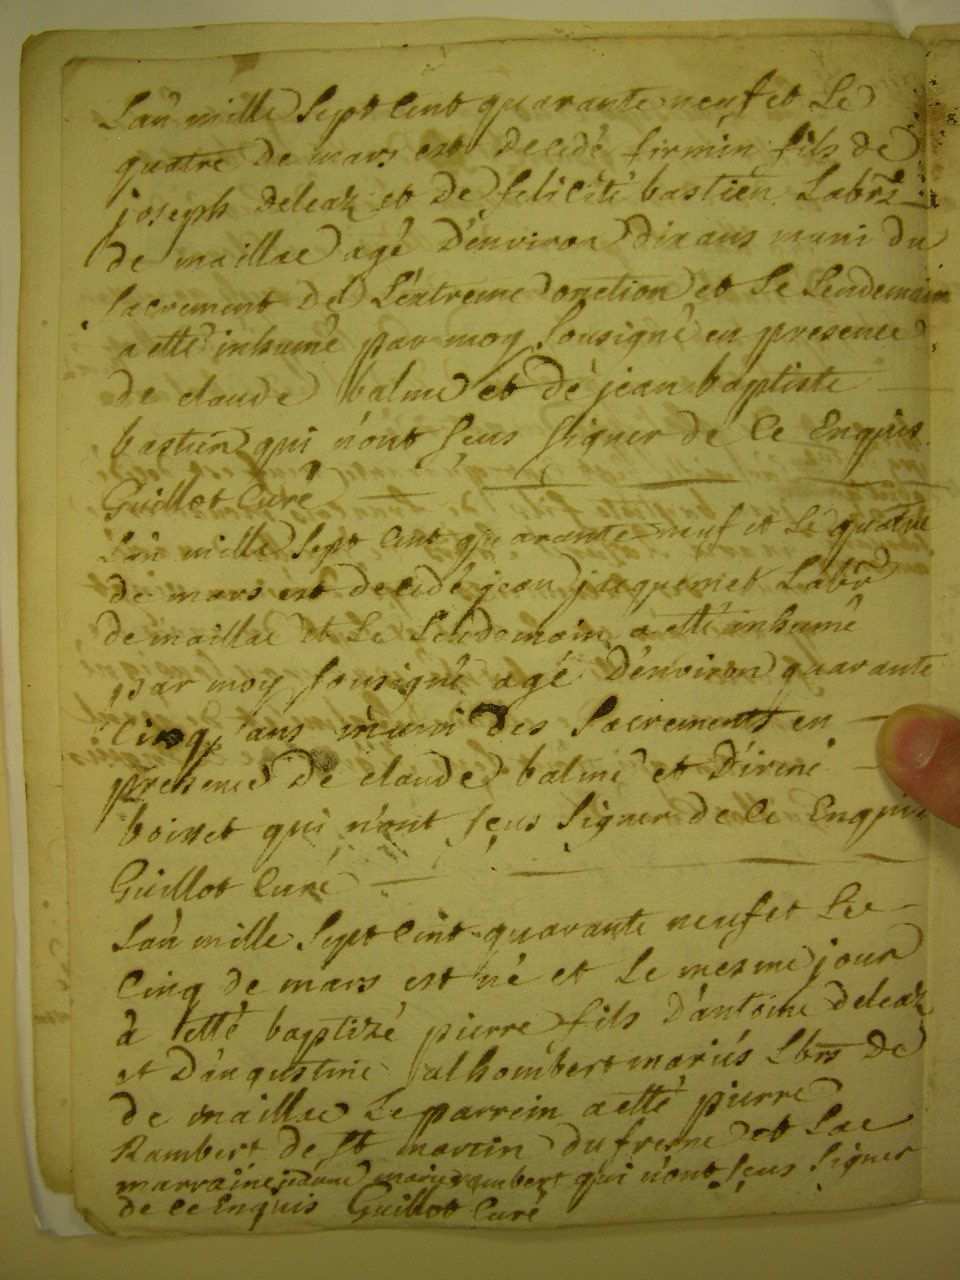 L'an mille Sept Cent quarante neuf et Le
quatre De mars est Decedé firmin fils de
joseph deleaz et De felicité bastien Labrs
de maillac agé D'environ dix ans muni du
Sacrement de L'extreme onction et Le Lendemain
a etté inhumé par moy Sousigné en presence
de claude balme et de jean baptiste
bastien qui n'ont sçus signer de Ce Enquis
Guillot Curé
L'an mille Sept Cent quarante neuf et Le quatre
de mars est decedé jean jacquemet Labr
de maillac et Le Lendemain a etté inhumé
par moy Sousigné agé D'environ quarante
Cinq ans muni des Sacrements en
presence De claude balme et D'irené
boisset qui n'ont sçus Signer de Ce Enquis
Guillot Curé
L'an mille Sept Cent quarante neuf et Le
Cinq de mars est né et Le mesme jour
à etté baptizé pierre fils D'antoine deleaz
et D'augustine alhombert mariés Lbrs De
de maillac Le parrein a etté pierre
Rambert de St martin du fresne et La
marraine jeanne marie rambert qui n'ont sçus Signer
de Ce Enquis Guillot Curé